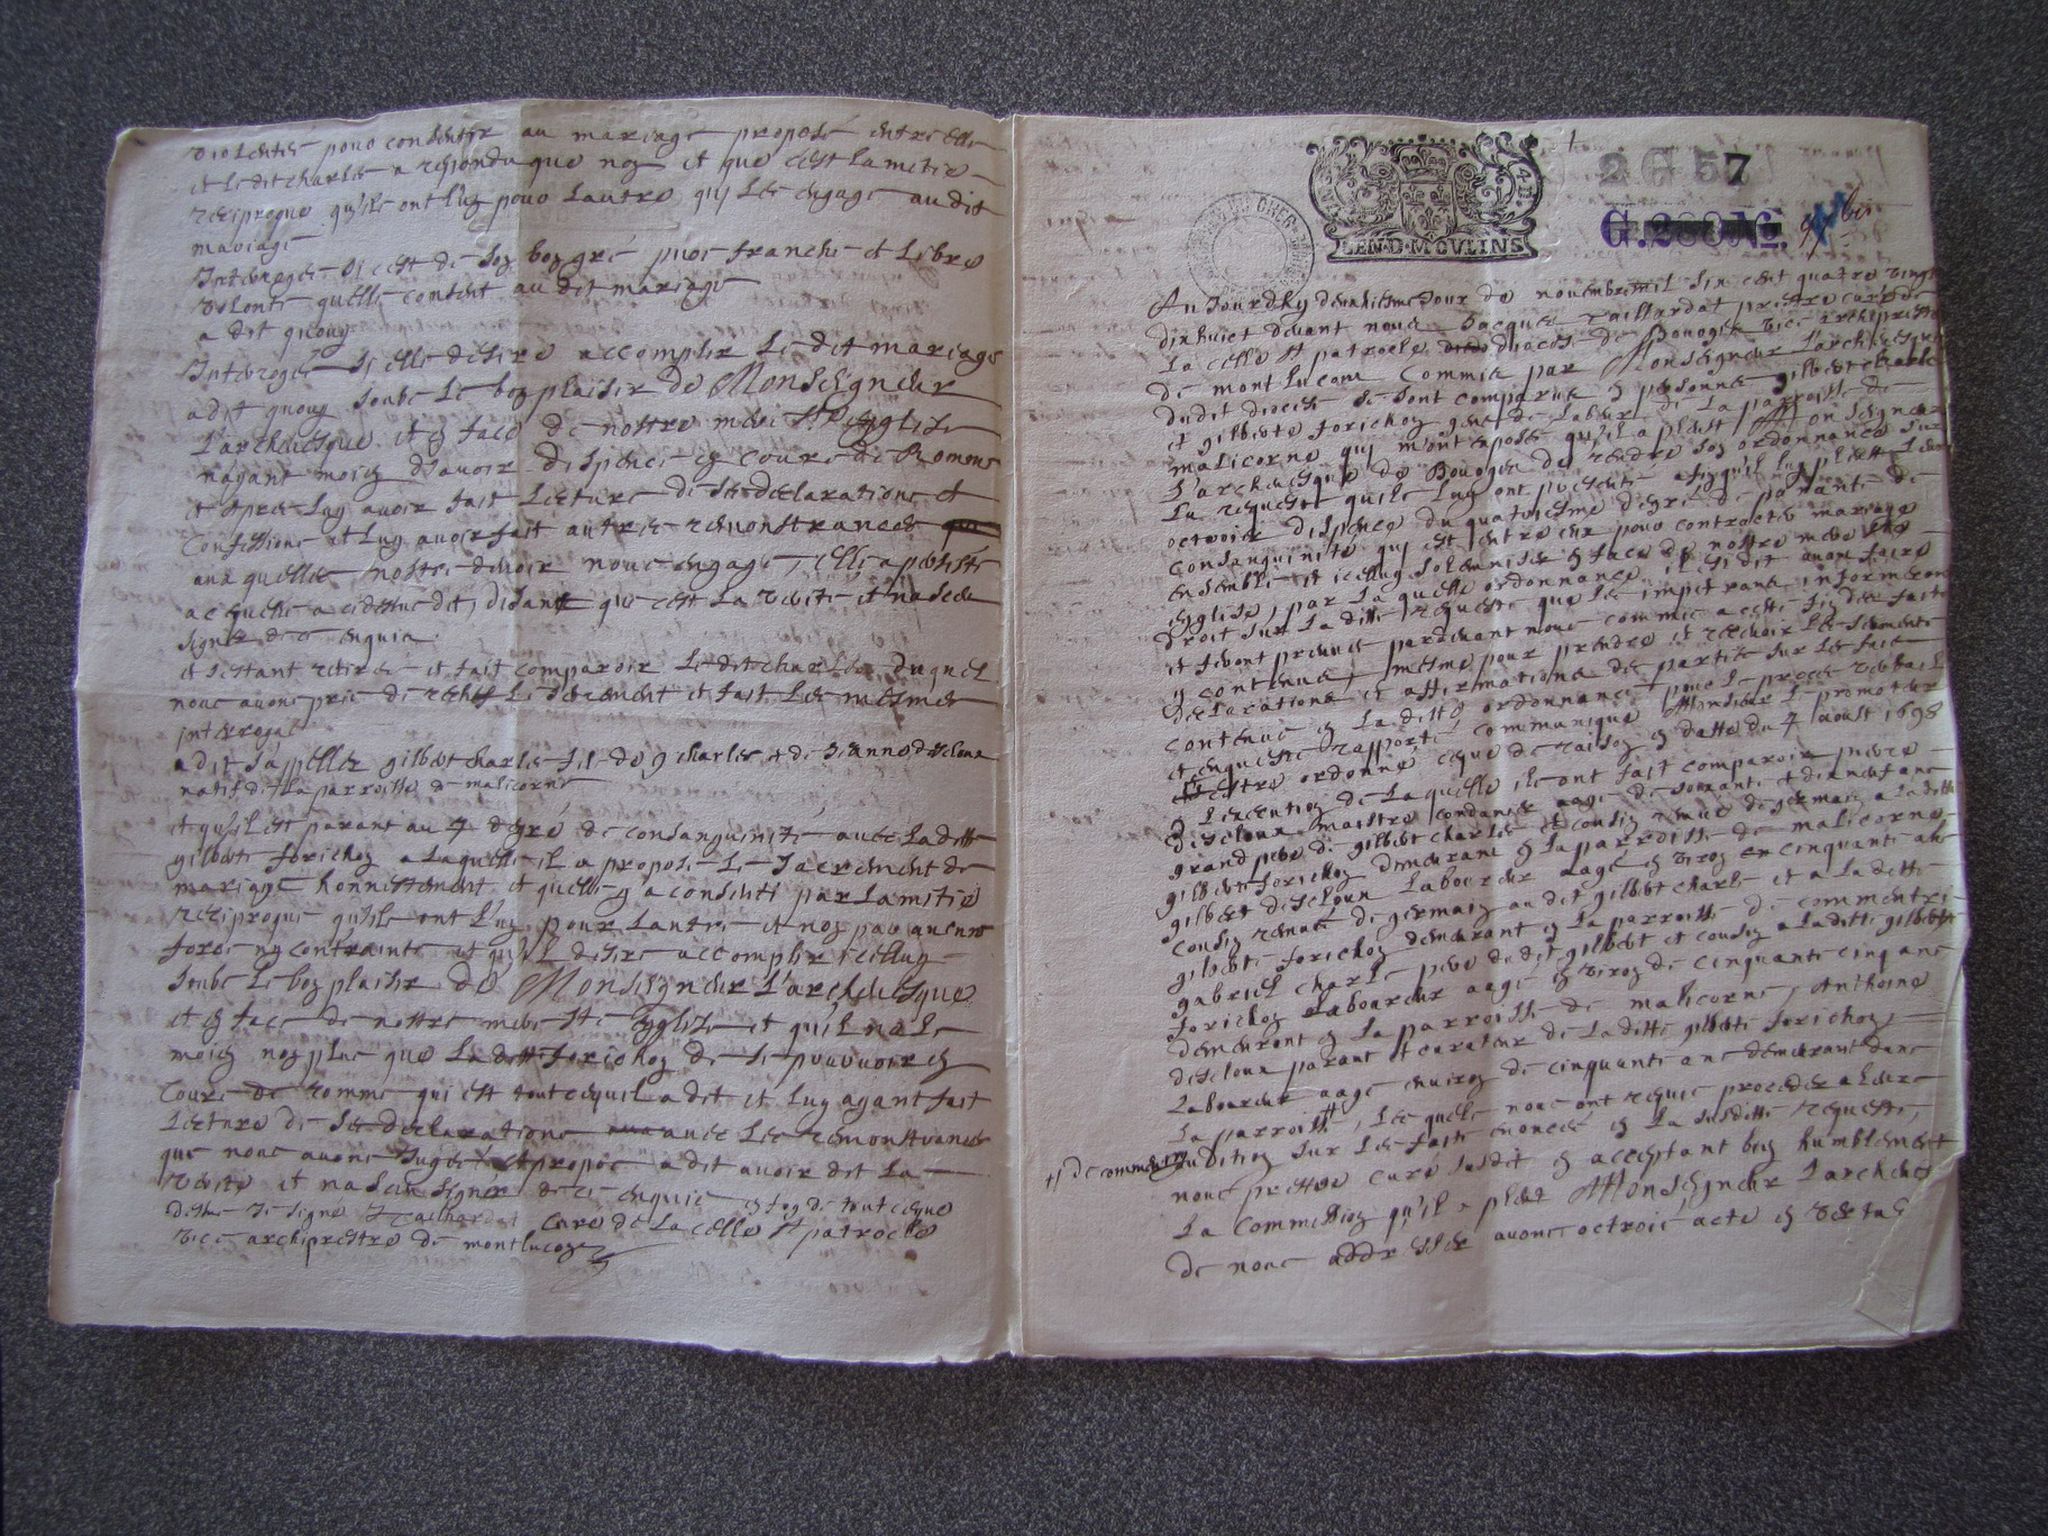 violentée pour consentir au mariage proposé entre elle
et le dit charles a respondu que non et que c'est lamitié
reciproque qu'ils ont l'un pour lautre qui les engage au dit
mariage
Interrogée si c'est de son bon gré pure franche et libre
volonté quelle consent au dit mariage
a dit quouy
Interrogée si elle desire accomplir le dit mariage
a dit quouy soubs le bon plaisir de Monseigneur
L'archevesque et en face de nostre mere Ste Eglise
nayant moien davoir dispence en cours de Romme
et apres luy avoir fait lecture de ses declarations et
confessions et luy avoir fait autres remonstrances
aux quelles nostre devoir nous engage, elle a persisté
a ce quelle a cidessus dit, disant que cest la verité et na sceu
signer de ce enquis
et sestant retirée et fait comparoir ledit charles duquel
nous avons pris de rechef le serement et fait les mesmes
interrogat
a dit sapeller gilbert charles fils de g charles et de Jeanne descloux
natif de la parroisse de malicorne
et qu'il est parant au 4 degré de consanguinité avec la ditte
gilberte forichon a laquelle il a proposé le sacrement de
mariage honnestement et quelle y a consenti par lamitié
reciproque qu'ils ont l'un pour lautre et non par aucune
force ny contrainte et qu'il desire accomplir icelluy
soubs le bon plaisir de Monseigneur L'archevesque
et en face de nostre mere Ste Eglise et qu'il na le
moien non plus que laditte forichon de se pourvoir en
cours de romme qui est tout cequil a dit et luy ayant fait
lecture de ses declarations avec les remonstrances
que nous avons jugées apropos a dit avoir dit la
verité et na sceu signer de ce enquis en foy de tout ceque
dessus je signé Taillardat curé de La celle St patrocle
vice archiprestre de montlucon
2 G 57
G. 280 No. bis
GEN.D.MOVLINS
Aujourdhuy dixhuitiesme jour de novembre mil six cent quatre vingt
dixhuict devant nous Jacques Taillardat prestre curé de
La celle St patrocle diocese de Bourges vice archiprestre
de montlucon commis par Monseigneur L'archevesque
dudit diocese se sont comparus en personnes gilbert charles
et gilberte forichon gens de labeur de la parroisse de
malicorne qui m'ont exposé qu'il a pleust Monseigneur
L'archevesque de Bourges de rendre son ordonnance sur
La requeste quils luy ont presenté afin qu'il luy pleust leur
octroier dispence du quatriesme degré de paranté de
consanguinité qui est entre eux pour contracter mariage
ensemble et icelluy solemniser en face de nostre mere Ste
Eglise, par la quelle ordonnance il est dit avant faire
droit sur laditte requeste que les impetrans informeront
et feront preuve pardevant nous commis a cette fin des faits
y contenus, mesme pour prendre et recevoir les serments
declarations et affirmations des parties sur les faits
contenus en la ditte ordonnance pour le proces verbail
et enqueste rapporté communiqué Monsieur le promoteur
estre ordonné ceque de raison en datte du 4 aoust 1698
En l'execution de laquelle ils ont fait comparoir pierre
descloux maistre condamis aagé de soixante et dixneuf ans
grand pere de gilbert charles et cousin remué de germain a laditte
gilberte forichon demeurans en la parroisse de malicorne
gilbert descloux laboureur aagé en viron cinquante ans
cousin remué de germain au dit gilbert charles et a la ditte
gilberte forichon demeurant en la parroisse de commentri
gabriel charles pere dudit gilbert et cousin a laditte gilberte
forichon laboureur aagé en viron de cinquante cinq ans
demeurant en la parroisse de malicorne, Anthoine
descloux parant et curateur de laditte gilberte forichon
laboureur aagé environ de cinquante ans demeurant dans
la parroisse, lesquels nous ont requis proceder a leurs
+/ de commentry
audition sur les faits enoncés en la susditte requeste,
nous prestre curé susdit en acceptant bien humblement
La commission qu'il a pleut Monseigneur Larcheves
de nous addresser avons octroié acte en vertu